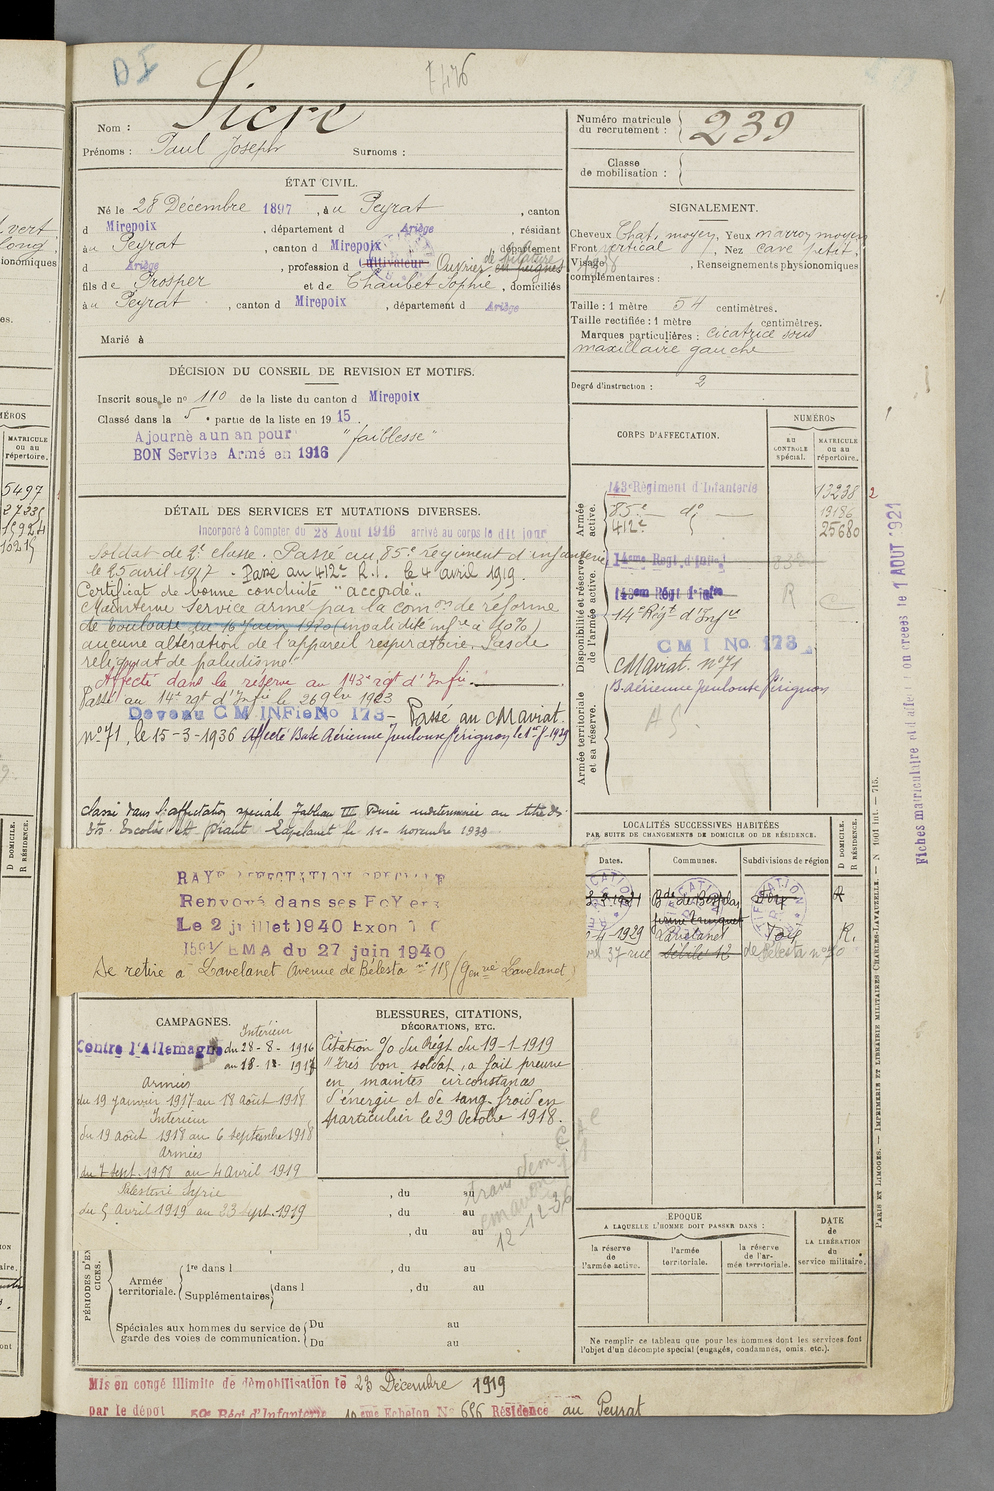 DI
7476
Nom : Sicre
Prénoms : Paul Joseph Surnoms :
ÉTAT CIVIL.
Né le 28 Décembre 1897, à u Peyrat, canton
d Mirepoix, département d Ariège, résidant
à u Peyrat, canton d Mirepoix, département
d Ariège, profession d Cultivateur Ouvrier en peignes
fils de Prosper et de Chaubet Sophie, domiciliés
à u Peyrat, canton d Mirepoix, département d Ariège
Marié à
DÉCISION DU CONSEIL DE REVISION ET MOTIFS.
Inscrit sous le n° 110 de la liste du canton d Mirepoix
Classé dans la 5e partie de la liste en 1915.
Ajourné a un an pour "faiblesse"
BON Service Armé en 1916
DÉTAIL DES SERVICES ET MUTATIONS DIVERSES.
Incorporé à Compter du 28 Aout 1916 arrivé au corps le dit jour
Soldat de 2e classe. Passé au 85e régiment d'infanterie
le 25 avril 1917 - Passé au 412e R.I. le 4 avril 1919.
Certificat de bonne conduite "accordé"
Maintenu service armé par la com.on de réforme
de Toulouse du 16 Juin 1920 (invalidité infre à 10%)
aucune altération de l'appareil respiratoire. Pas de
reliquat de paludisme
Affecté dans la réserve au 143e rgt d'Infie.
Passé au 14e rgt d'Infie le 26 9bre 1923
Devenu C M INFie No 173 - Passé au CM aviat.
n° 71, le 15-3-1936 Affecté Base Aérienne Toulouse Pérignon le 1er-5-1939
Classé dans l'affectation spéciale Tableau III Durée indéterminée au titre des
Ets. Escolier et Lavelanet le 11 novembre 1939
RAYE AFFECTATION SPECIALE
Renvoyé dans ses FoYers
Le 2 juillet 1940
EMA du 27 juin 1940
Se retire à Lavelanet Avenue de Bélesta n° 115 (Gen rie Lavelanet)
CAMPAGNES.
Contre l'Allemagne
Intérieur
du 28-8-1916
au 18-1-1917
Armées
du 19 janvier 1917 au 18 Août 1918
Intérieur
du 19 août 1918 au 6 septembre 1918
Armées
du 7 sept. 1918 au 4 Avril 1919
Palestine Syrie
du 5 Avril 1919 au 23 sept. 1919
BLESSURES, CITATIONS,
DÉCORATIONS, ETC.
Citation O/ du Régt du 19-1-1919
"Très bon soldat, a fait preuve
en maintes circonstances
d'énergie et de sang-froid en
particulier le 29 Octobre 1918.
12-12-36
, du au
, du au
, du au
PÉRIODES D'EXERCICES.
Armée territoriale.
1re dans l , du au
Supplémentaires dans l , du au
Spéciales aux hommes du service de garde des voies de communication.
Du au
Du au
Mis en congé illimité de démobilisation le 23 Décembre 1919
par le dépôt 59e Régt d'Infanterie 10eme Echelon No 686 Résidence au Peyrat
Numéro matricule du recrutement : 239
Classe de mobilisation :
SIGNALEMENT.
Cheveux Chat. moyen, Yeux marron moyen
Front vertical, Nez cave petit.
Visage, Renseignements physionomiques
complémentaires :
Taille : 1 mètre 54 centimètres.
Taille rectifiée : 1 mètre centimètres.
Marques particulières : cicatrice sous
maxillaire gauche
Degré d'instruction : 2
CORPS D'AFFECTATION.
NUMÉROS
au CONTROLE spécial.
MATRICULE ou au répertoire.
Armée active.
143e Régiment d'Infanterie 13238
85e do 13186
412e 25680
Disponibilité et réserve de l'armée active.
14eme Regt d'Infie
143em Régt d'Infre R
14e Régt d'Infie
C M I No. 173
CM aviat. n° 71
Armée territoriale et sa réserve.
B. aérienne Toulouse Pérignon
AS.
LOCALITÉS SUCCESSIVES HABITÉES
PAR SUITE DE CHANGEMENTS DE DOMICILE OU DE RÉSIDENCE.
Dates.
Communes.
Subdivisions de région
D DOMICILE. R RÉSIDENCE.
Foix R
4-1929 Lavelanet Foix R.
37 rue de Bélesta
ÉPOQUE
A LAQUELLE L'HOMME DOIT PASSER DANS :
DATE de LA LIBÉRATION du service militaire.
la réserve de l'armée active.
l'armée territoriale.
la réserve de l'armée territoriale.
Ne remplir ce tableau que pour les hommes dont les services font
l'objet d'un décompte spécial (engagés, condamnés, omis, etc.).
PARIS ET LIMOGES. — IMPRIMERIE ET LIBRAIRIE MILITAIRES CHARLES-LAVAUZELLE. — N 1001 int. — 715.
Fiches matriculaire et d'affectation créées le 1 AOUT 1921
vert
ionomiques
MATRICULE
ou au
répertoire.
5497
D DOMICILE.
R RÉSIDENCE.